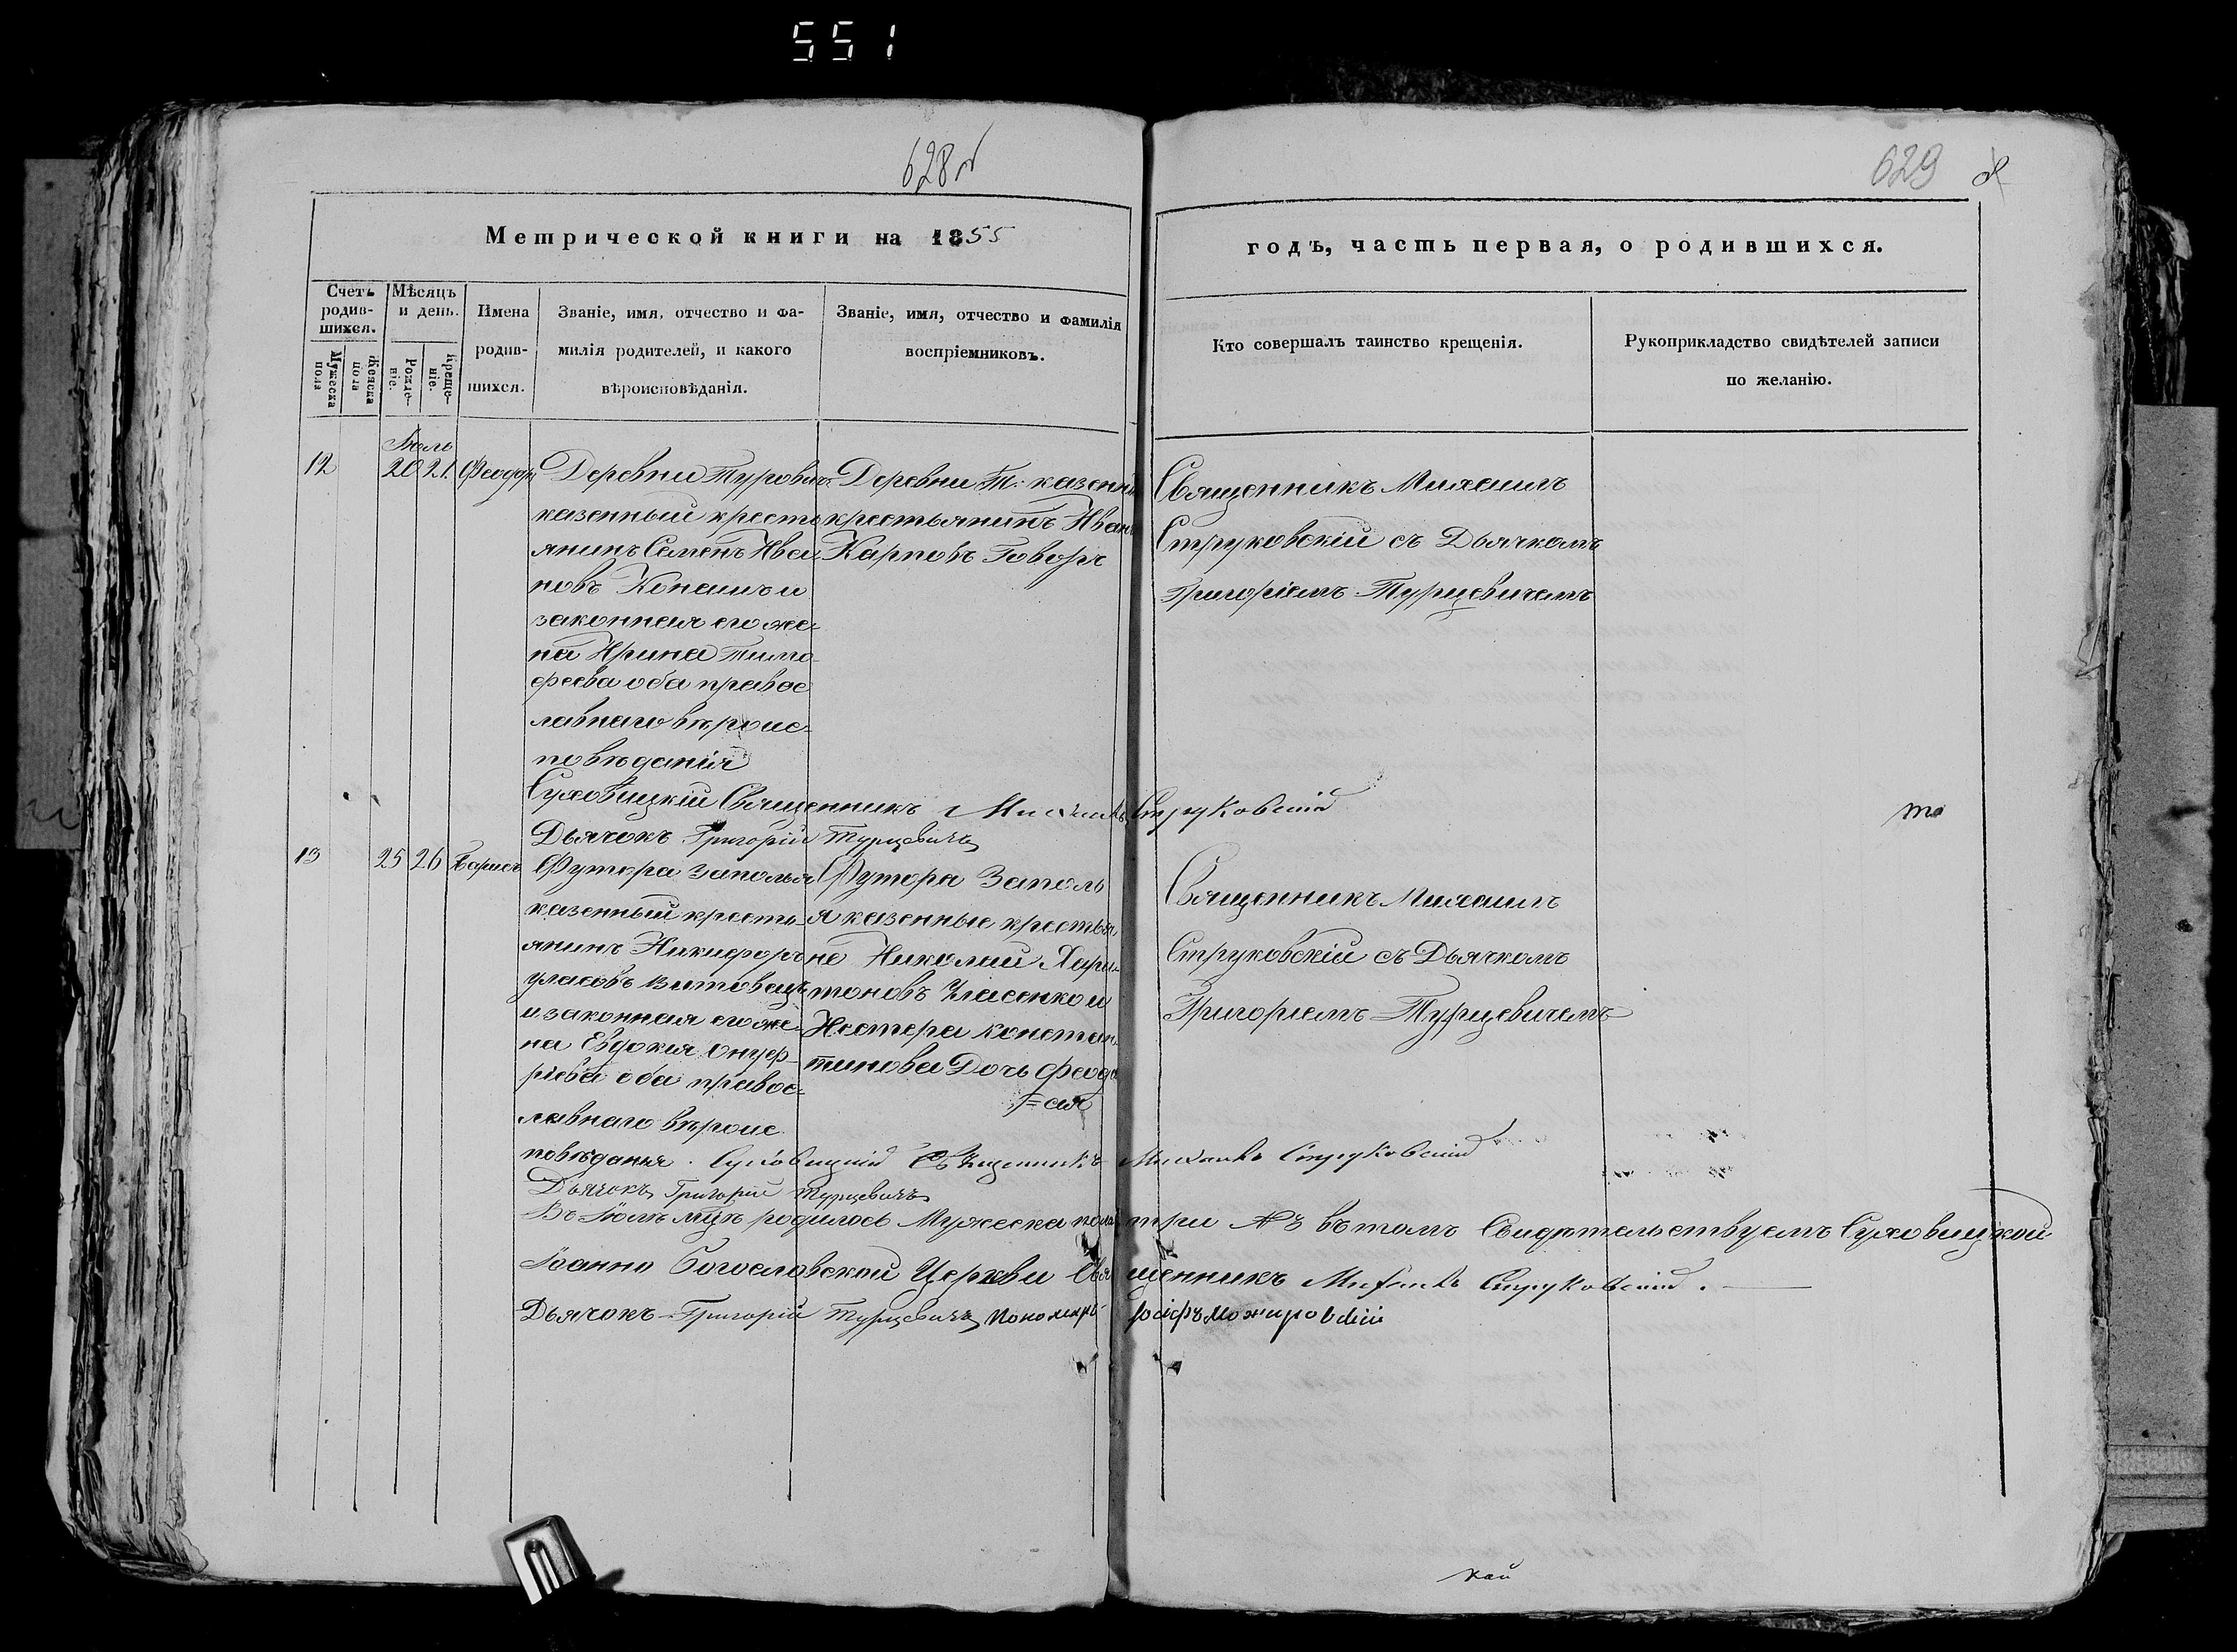 551
628
629
Метрической книги на 1855
годъ, часть первая, о родившихся.
Счетъ родив-шихся.
Мужеска пола
Женска пола
Мѣсяцъ и день.
Рожде-ніе.
Креще-ніе.
Имена родив-шихся.
Званіе, имя, отчество и фа-
милія родителей, и какого
вѣроисповѣданія.
Званіе, имя, отчество и фамилія
воспріемниковъ.
Кто совершалъ таинство крещенія.
Рукоприкладство свидѣтелей записи
по желанію.
Іюль
12 20 21. Феодоръ
Деревни Туровичъ
казенный кресть
янинъ Семенъ Ива
новъ Конашъ и
законная его же-
на Ирина Тимо-
феева оба правос
лавнаго вѣроис-
повѣданія
Деревни Т: казенный
крестьянинъ Иванъ
Карповъ Говоръ
Священникъ Михаилъ
Струковскій съ Дьячкомъ
Григоріемъ Турцевичемъ
Суховицкій Священникъ Михаилъ Струковскій
Дьячокъ Григорій Турцевичъ
13 25 26
Футора Заполья
казенный кресть-
янинъ Никифоръ
и законная его же-
на Евдокія Онуф-
ріева оба правос-
лавнаго вѣроис
повѣданья.
Футора Заполь
я казенные крестья
не Николай Хари-
тоновъ Власенко и
Нестера констан-
тинова Дочь Феодо
=сія
Священникъ Михаилъ
Струковскій съ Дьячкомъ
Григоріемъ Турцевичемъ
Суховицкій Священникъ Михаилъ Струковскій
Дьячокъ Григорій Турцевичъ
Въ Іюлѣ мцѣ родилось Мужеска пола три въ томъ Свидѣтельствуемъ Суховицкой
Іоанно Богословской Церкви Священникъ Михаилъ Струковскій.
Дьячокъ Григорій Турцевичъ Пономарь
кой